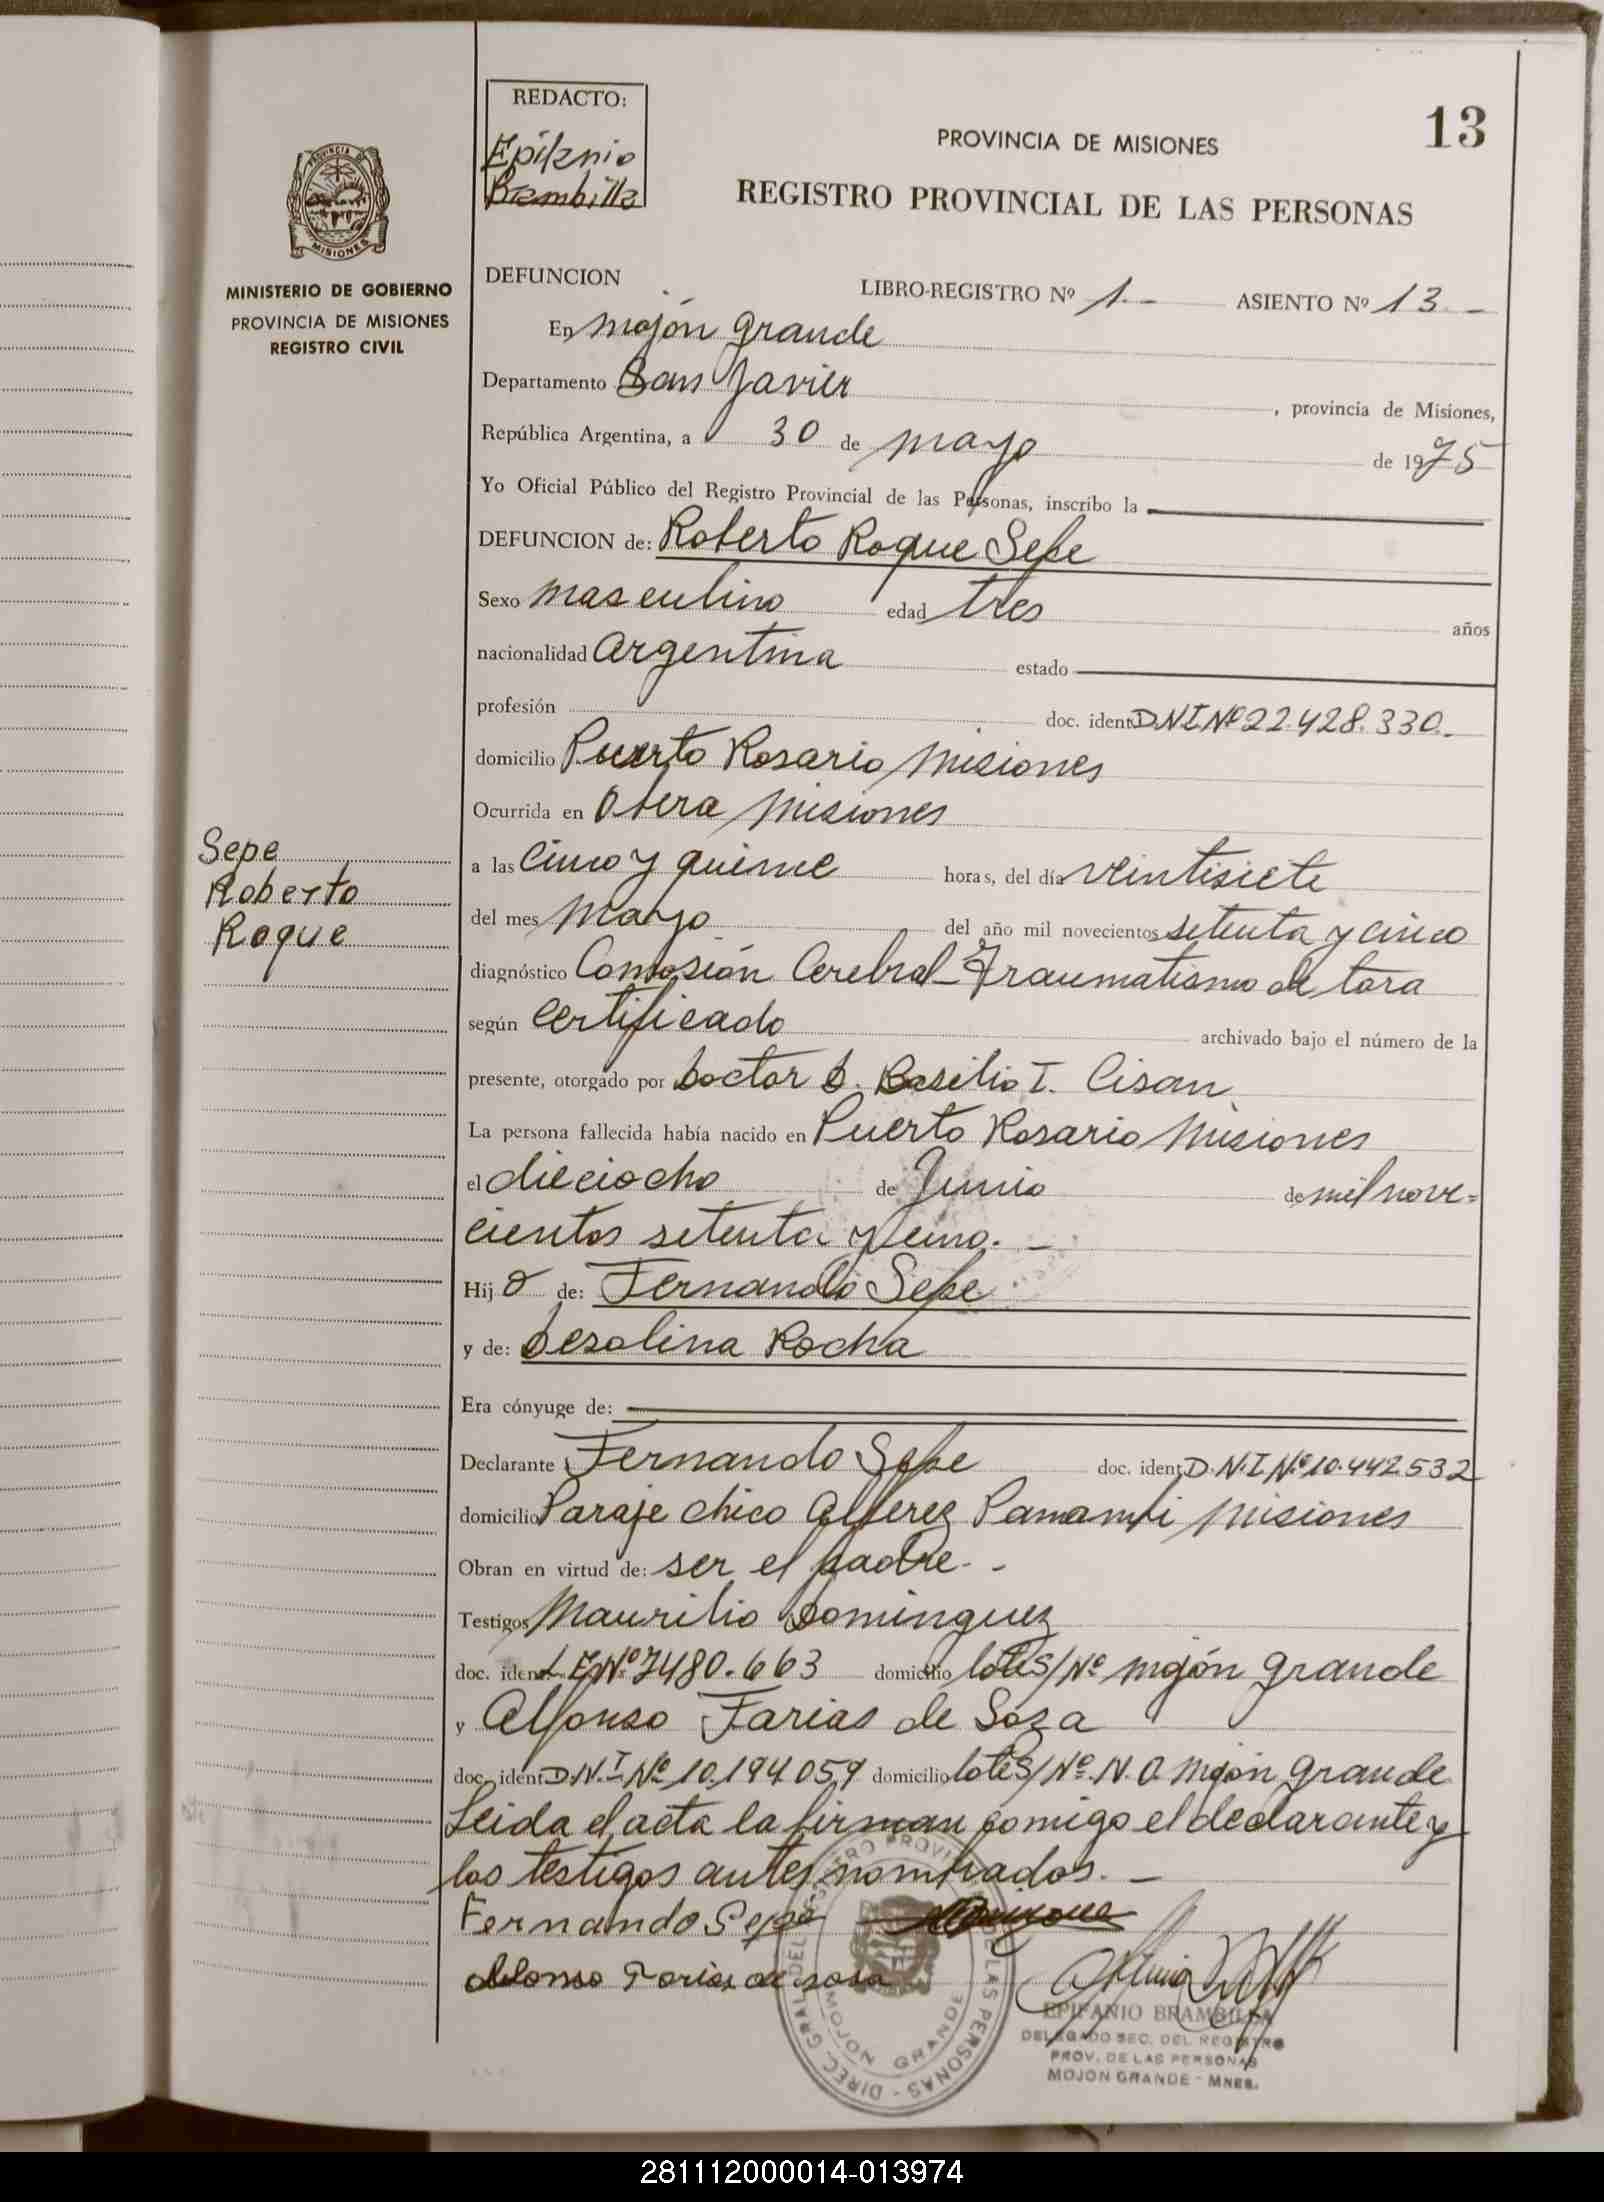 REDACTO:
Epifanio
Brambilla
13
PROVINCIA DE MISIONES
REGISTRO PROVINCIAL DE LAS PERSONAS
PROVINCIA DE
MISIONES
MINISTERIO DE GOBIERNO
PROVINCIA DE MISIONES
REGISTRO CIVIL
DEFUNCION LIBRO-REGISTRO Nº 1.- ASIENTO Nº 13.-
En mojón grande
Departamento San Javier, provincia de Misiones,
República Argentina, a 30 de mayo de 1975
Yo Oficial Público del Registro Provincial de las Personas, inscribo la
DEFUNCION de: Roberto Roque Sepe
Sexo masculino edad tres años
nacionalidad Argentina estado
profesión doc. ident. D.N.I. Nº 22.428.330.-
domicilio Puerto Rosario Misiones
Ocurrida en Obera Misiones
Sepe
Roberto
Roque
a las Cinco y quince horas, del día veintisiete
del mes Mayo del año mil novecientos setenta y cinco
diagnóstico Comosión Cerebral - Traumatismo de tora
según Certificado archivado bajo el número de la
presente, otorgado por Doctor D. Basilio I. Cisan
La persona fallecida había nacido en Puerto Rosario Misiones
el dieciocho de Junio de mil nove=
cientos setenta y uno.-
Hijo de: Fernando Sepe
y de: Desolina Rocha
Era cónyuge de:
Declarante Fernando Sepe doc. ident. D.N.I. Nº 10.442.532
domicilio Paraje chico Alferez Panambi Misiones
Obran en virtud de: ser el padre.-
Testigos Maurilio Dominguez
doc. ident. L.E. Nº 7480.663 domicilio lote S/Nº mojón grande
y Alfonso Farias de Soza
doc. ident. D.N.I. Nº 10.194.059 domicilio lote S/Nº. N.O. Mojón grande
Leida el acta la firman comigo el declarante y
los testigos antes nombrados.-
Fernando Sepe
Alfonso Farias de sosa
DIREC. GRAL. DEL REGISTRO PROVINCIAL DE LAS PERSONAS
MOJON GRANDE
EPIFANIO BRAMBILLA
DELEGADO SEC. DEL REGISTRO
PROV. DE LAS PERSONAS
MOJON GRANDE - MNES.
281112000014-013974